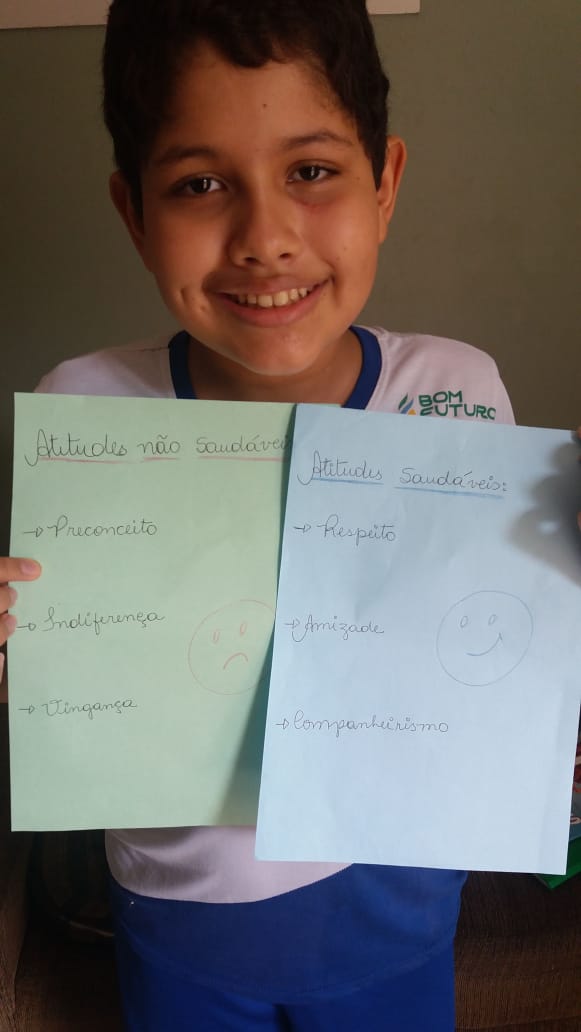 BOM
FUTURO
Atitudes não saudávei
→ Preconceito
→ Indiferença
→ Vingança
Atitudes saudáveis:
→ Respeito
→ Amizade
→ Companheirismo